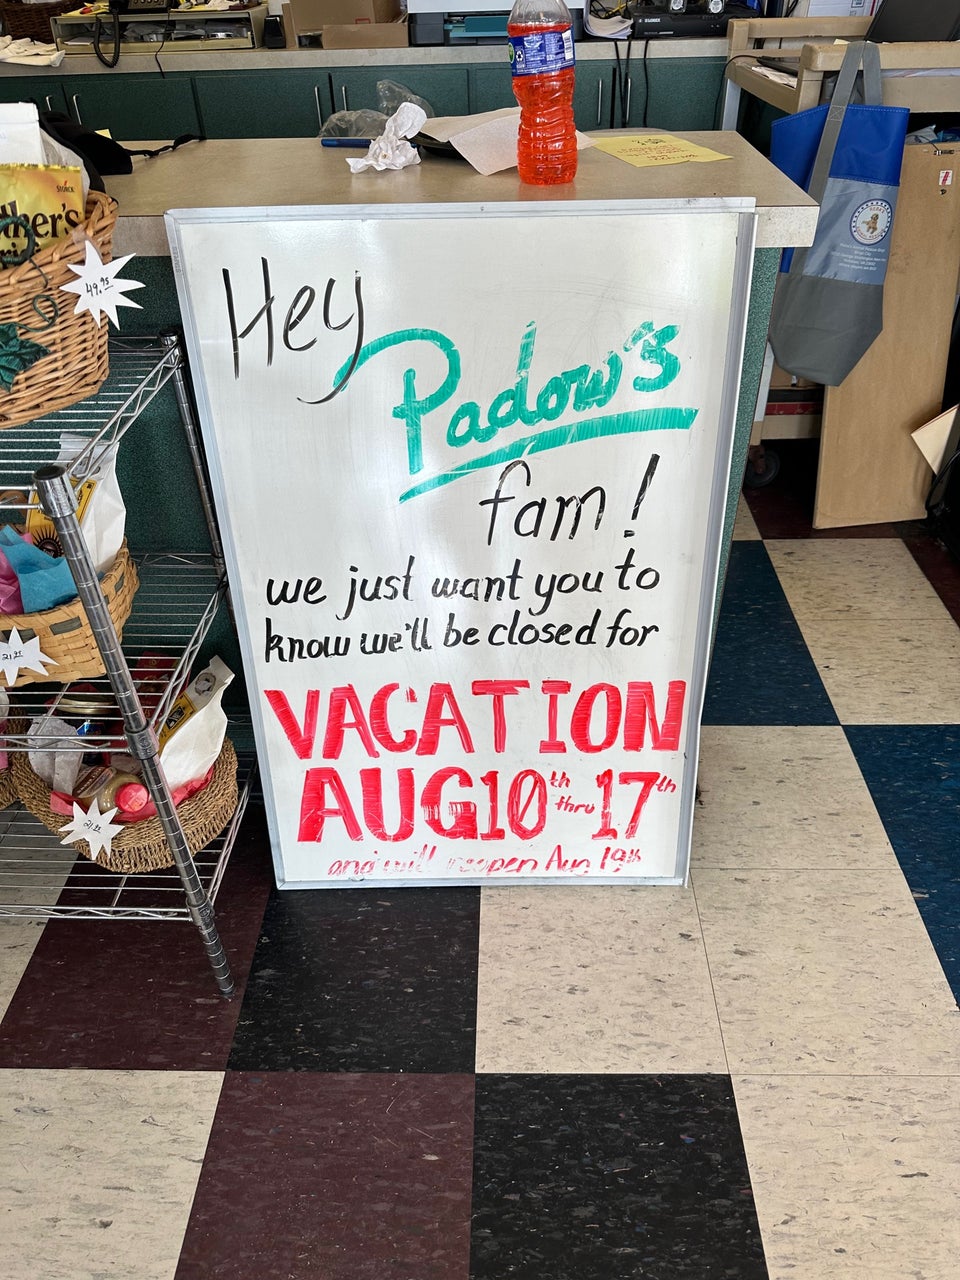 Hey
Padow's
fam!
we just want you to
know we'll be closed for
VACATION
AUG 10th thru 17th
and will reopen Aug 19th
STORCK
ther's
49.95
21.95